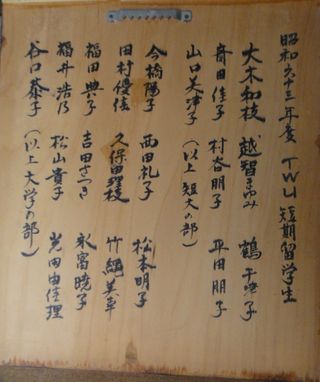 昭和六十三年度 TWU 短期留学生
大木和枝 越智まゆみ 鶴千暁子
奇田佳子 村谷朋子 平田朋子
山口美津子 (以上短大の部)
今橋陽子 西田礼子 松本明子
田村優佳 久保田理枝 竹綱美幸
福田典子 吉田さつき 永富暁子
福井浩乃 松山貴子 光田由佳理
谷口泰子 (以上大学の部)